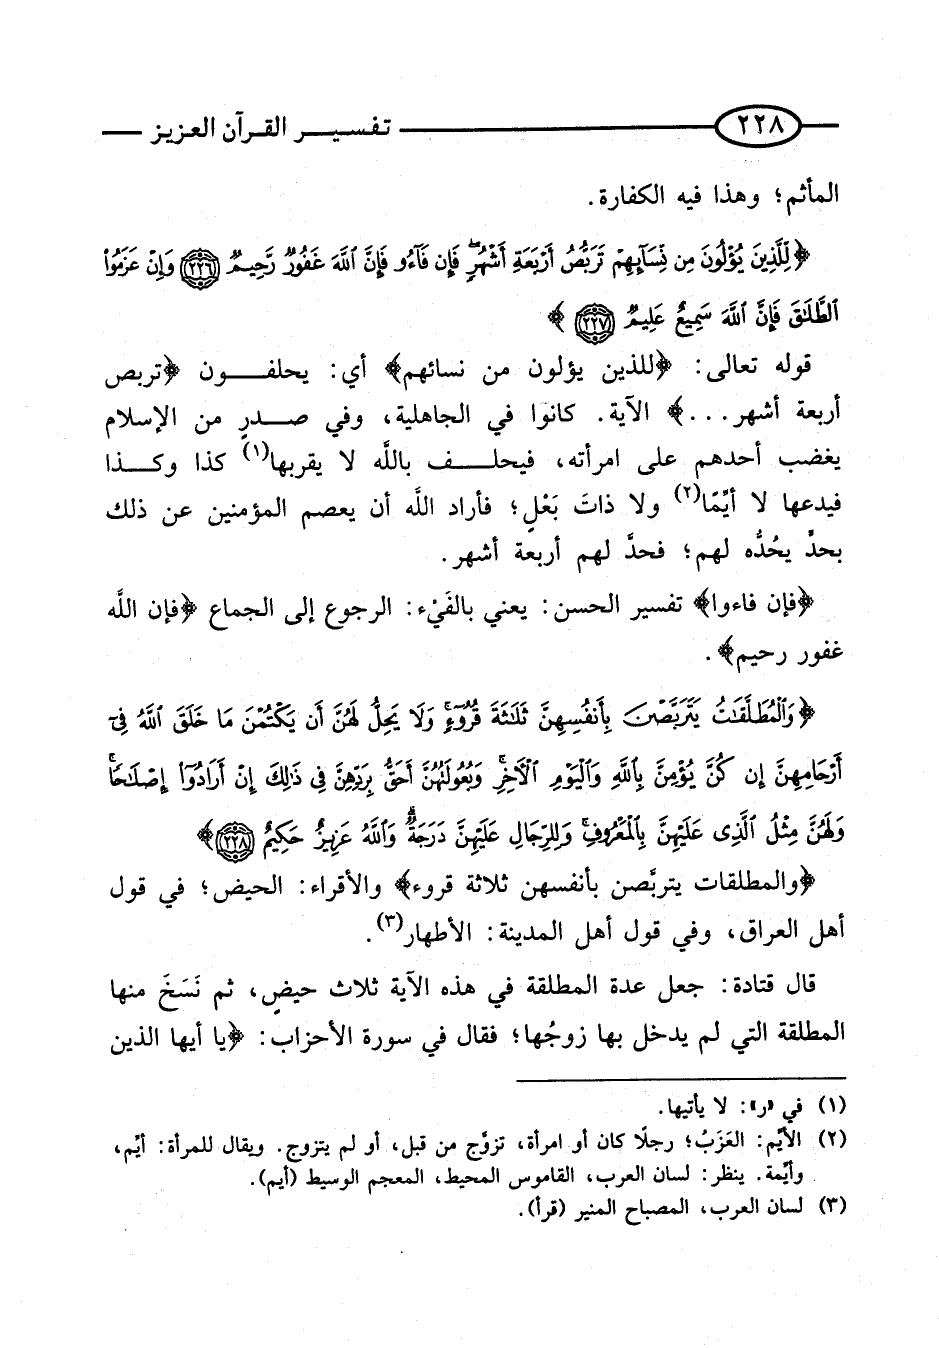 ٢٢٨ تفسير القرآن العزيز
المأثم؛ وهذا فيه الكفارة.
﴿لِّلَّذِينَ يُؤْلُونَ مِن نِّسَآئِهِمْ تَرَبُّصُ أَرْبَعَةِ أَشْهُرٍۖ فَإِن فَآءُو فَإِنَّ ٱللَّهَ غَفُورٌ رَّحِيمٌ ٢٢٦ وَإِنْ عَزَمُوا۟
ٱلطَّلَٰقَ فَإِنَّ ٱللَّهَ سَمِيعٌ عَلِيمٌ ٢٢٧﴾
قوله تعالى: ﴿للذين يؤلون من نسائهم﴾ أي: يحلفون ﴿تربص
أربعة أشهر...﴾ الآية. كانوا في الجاهلية، وفي صدرٍ من الإسلام
يغضب أحدهم على امرأته، فيحلف باللَّه لا يقربها(١) كذا وكذا
فيدعها لا أيِّمًا(٢) ولا ذاتَ بَعْلٍ؛ فأراد اللَّه أن يعصم المؤمنين عن ذلك
بحدٍّ يحُدُّه لهم؛ فحدَّ لهم أربعة أشهر.
﴿فإن فاءوا﴾ تفسير الحسن: يعني بالفَيْء: الرجوع إلى الجماع ﴿فإن اللَّه
غفور رحيم﴾.
﴿وَٱلْمُطَلَّقَٰتُ يَتَرَبَّصْنَ بِأَنفُسِهِنَّ ثَلَٰثَةَ قُرُوٓءٍۚ وَلَا يَحِلُّ لَهُنَّ أَن يَكْتُمْنَ مَا خَلَقَ ٱللَّهُ فِىٓ
أَرْحَامِهِنَّ إِن كُنَّ يُؤْمِنَّ بِٱللَّهِ وَٱلْيَوْمِ ٱلْءَاخِرِۚ وَبُعُولَتُهُنَّ أَحَقُّ بِرَدِّهِنَّ فِى ذَٰلِكَ إِنْ أَرَادُوٓا۟ إِصْلَٰحًاۚ
وَلَهُنَّ مِثْلُ ٱلَّذِى عَلَيْهِنَّ بِٱلْمَعْرُوفِۚ وَلِلرِّجَالِ عَلَيْهِنَّ دَرَجَةٌۗ وَٱللَّهُ عَزِيزٌ حَكِيمٌ ٢٢٨﴾
﴿والمطلقات يتربَّصن بأنفسهن ثلاثة قروء﴾ والأقراء: الحيض؛ في قول
أهل العراق، وفي قول أهل المدينة: الأطهار(٣).
قال قتادة: جعل عدة المطلقة في هذه الآية ثلاث حيضٍ، ثم نَسَخَ منها
المطلقة التي لم يدخل بها زوجُها؛ فقال في سورة الأحزاب: ﴿يا أيها الذين
(١) في «ر»: لا يأتيها.
(٢) الأيّم: العَزَبُ؛ رجلًا كان أو امرأة، تزوَّج من قبل، أو لم يتزوج. ويقال للمرأة: أيّم،
وأيّمة. ينظر: لسان العرب، القاموس المحيط، المعجم الوسيط (أيم).
(٣) لسان العرب، المصباح المنير (قرأ).